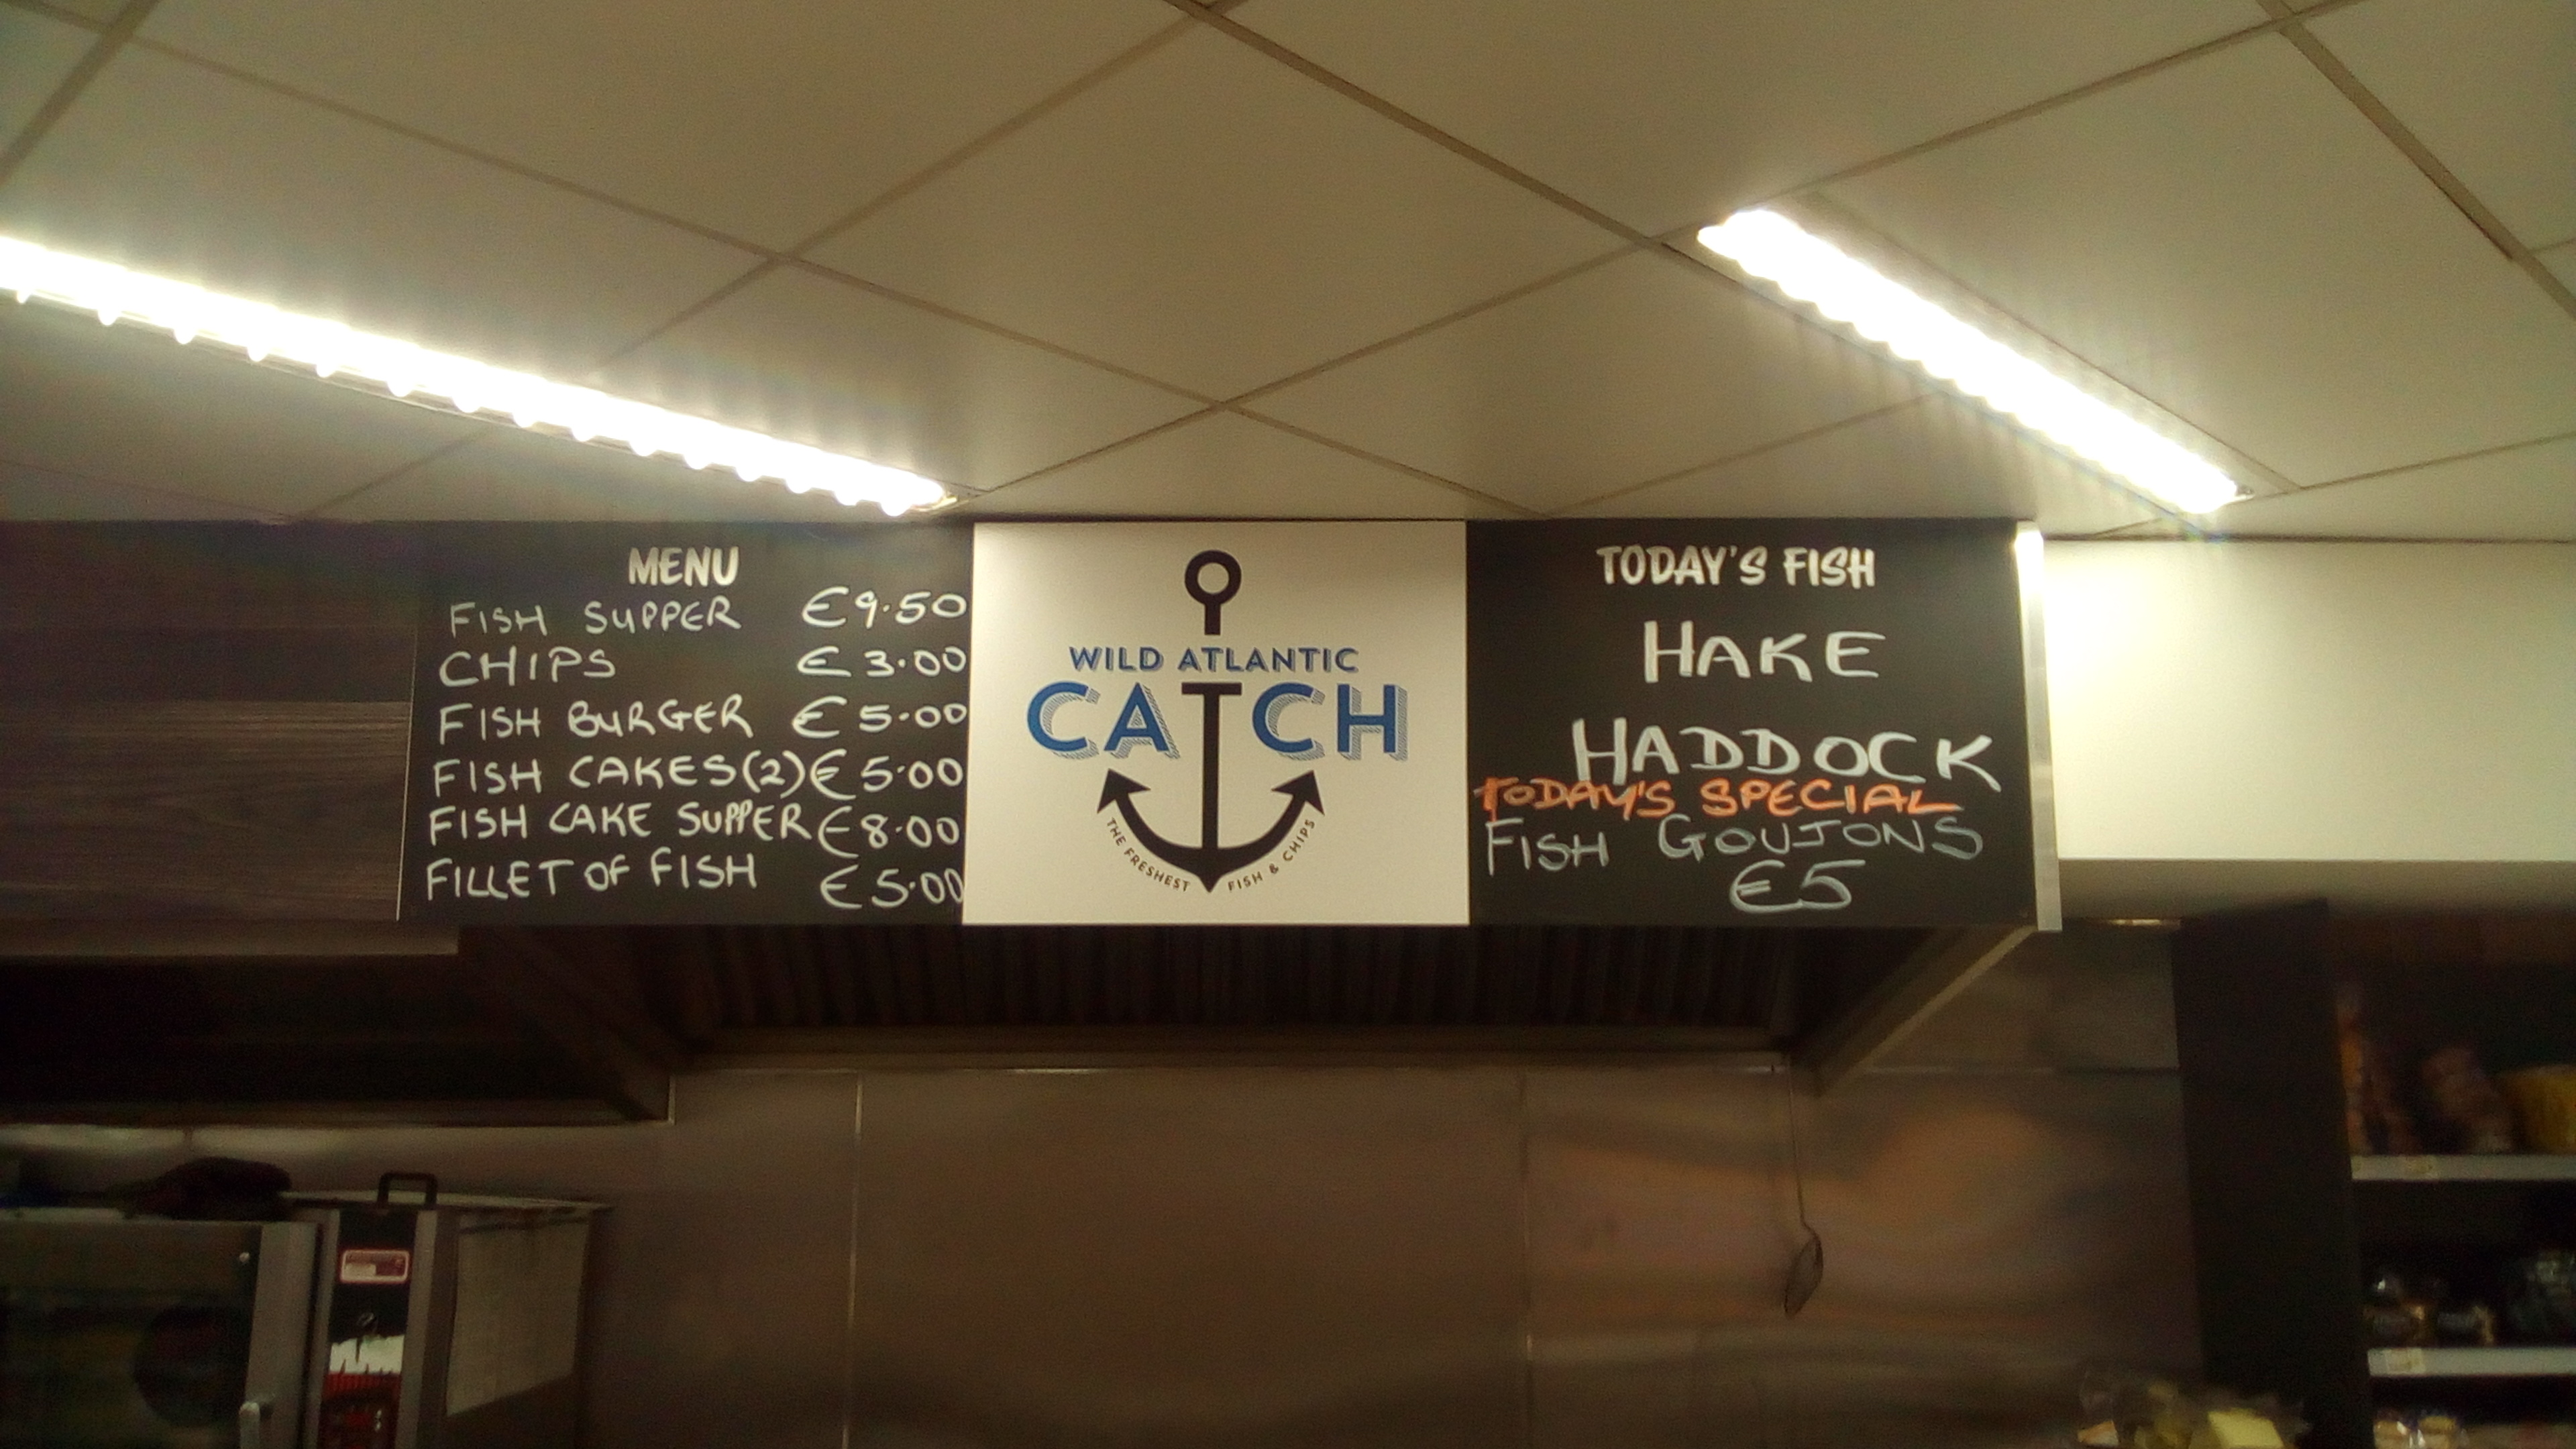 MENU
FISH SUPPER €9.50
CHIPS €3.00
FISH BURGER €5.00
FISH CAKES(2) €5.00
FISH CAKE SUPPER €8.00
FILLET OF FISH €5.00
WILD ATLANTIC
CATCH
THE FRESHEST FISH & CHIPS
TODAY'S FISH
HAKE
HADDOCK
TODAY'S SPECIAL
FISH GOUJONS
€5